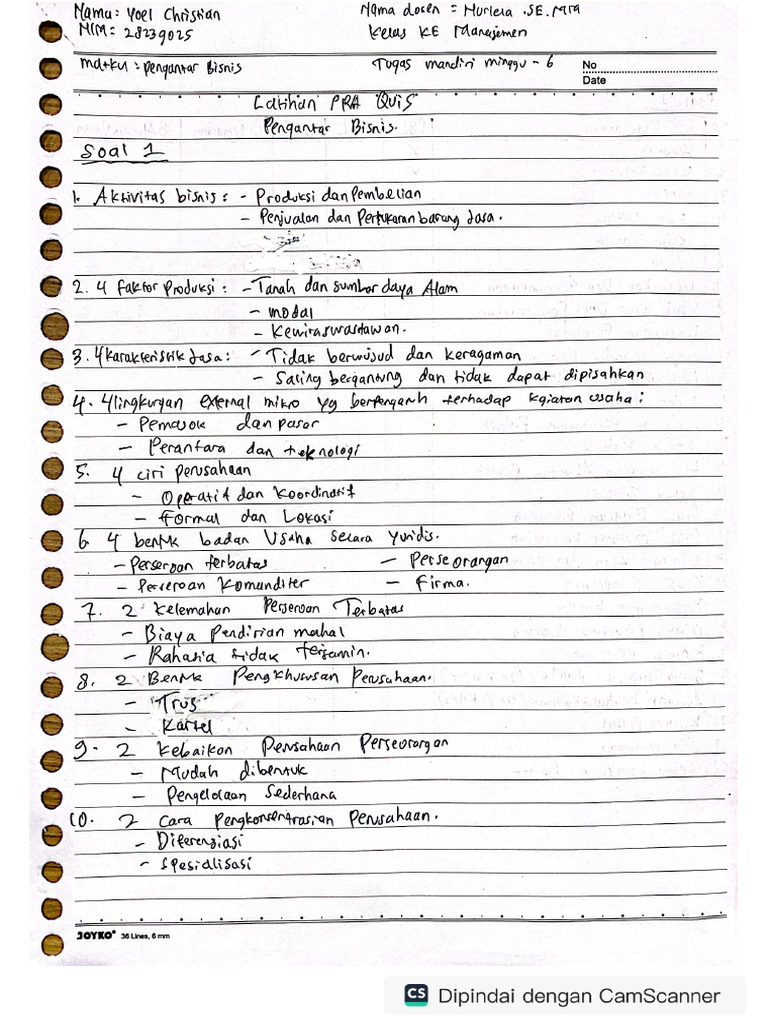 Nama: Yoel Christian
Nama dosen = Nurlela .SE.MM
NIM: 28239025
Kelas KE Manajemen
Matkul : Pengantar Bisnis
Tugas mandiri minggu - 6
No
Date
Latihan PRA QUIS
Pengantar Bisnis.
Soal 1
1. Aktivitas bisnis : - Produksi dan Pembelian
- Penjualan dan Pertukaran barang Jasa.
2. 4 faktor Produksi : - Tanah dan sumber daya Alam
- modal
- Kewiraswastawan.
3. 4 karakteristik Jasa : - Tidak berwujud dan keragaman
- Saling bergantung dan tidak dapat dipisahkan
4. 4 lingkungan external mikro yg berpengaruh terhadap kgiatan usaha :
- Pemasok dan pasar
- Perantara dan teknologi
5. 4 ciri perusahaan
- Operatif dan Koordinatif
- Formal dan Lokasi
6 4 bentuk badan Usaha secara yuridis.
- Perseroan terbatas - Perseorangan
- Perseroan Komanditer - Firma.
7. 2 kelemahan Perseroan Terbatas
- Biaya Pendirian mahal
- Rahasia tidak terjamin.
8. 2 Bentuk Pengkhususan Perusahaan.
- Trus
- Kartel
9. 2 Kebaikan Perusahaan Perseorangan
- Mudah dibentuk
- Pengelolaan Sederhana
10. 2 Cara Pengkonsentrasian Perusahaan.
- Diferensiasi
- Spesialisasi
JOYKO 36 Lines, 6 mm
CS Dipindai dengan CamScanner